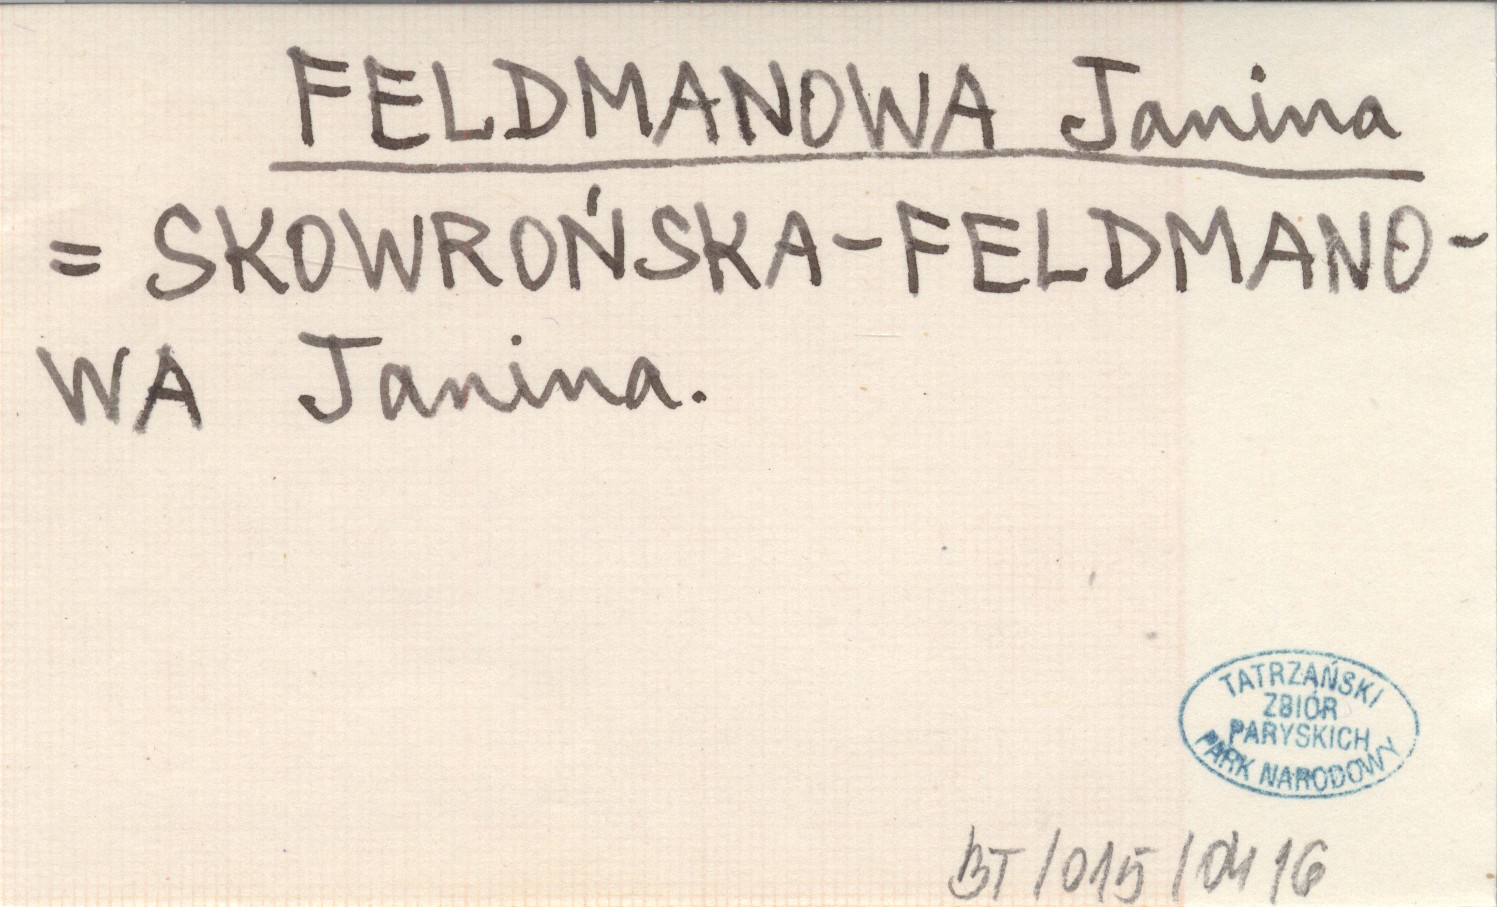 FELDMANOWA Janina
= SKOWROŃSKA-FELDMANO-
WA Janina.
TATRZAŃSKI
ZBIÓR
PARYSKICH
PARK NARODOWY
BT/015/04 16